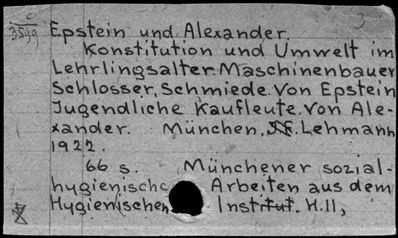 c
3599
Epstein und Alexander.
Konstitution und Umwelt im
Lehrlingsalter. Maschinenbauer
Schlosser, Schmiede. Von Epstein
Jugendliche Kaufleute. Von Ale-
xander. München, Lehmann
1922.
66 s. Münchener sozial-
hygienische Arbeiten aus dem
Hygienischen Institut. H. II,